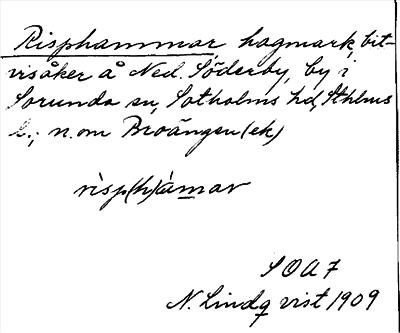 Risphammar, hagmark, bit-
visåker å Ned. Söderby, by i
Sorunda sn, Sotholms hd, Sthlms
l.; n. om Broängen (ek)
rìsp(h)ámar
SOA 7
N. Lindq vist 1909